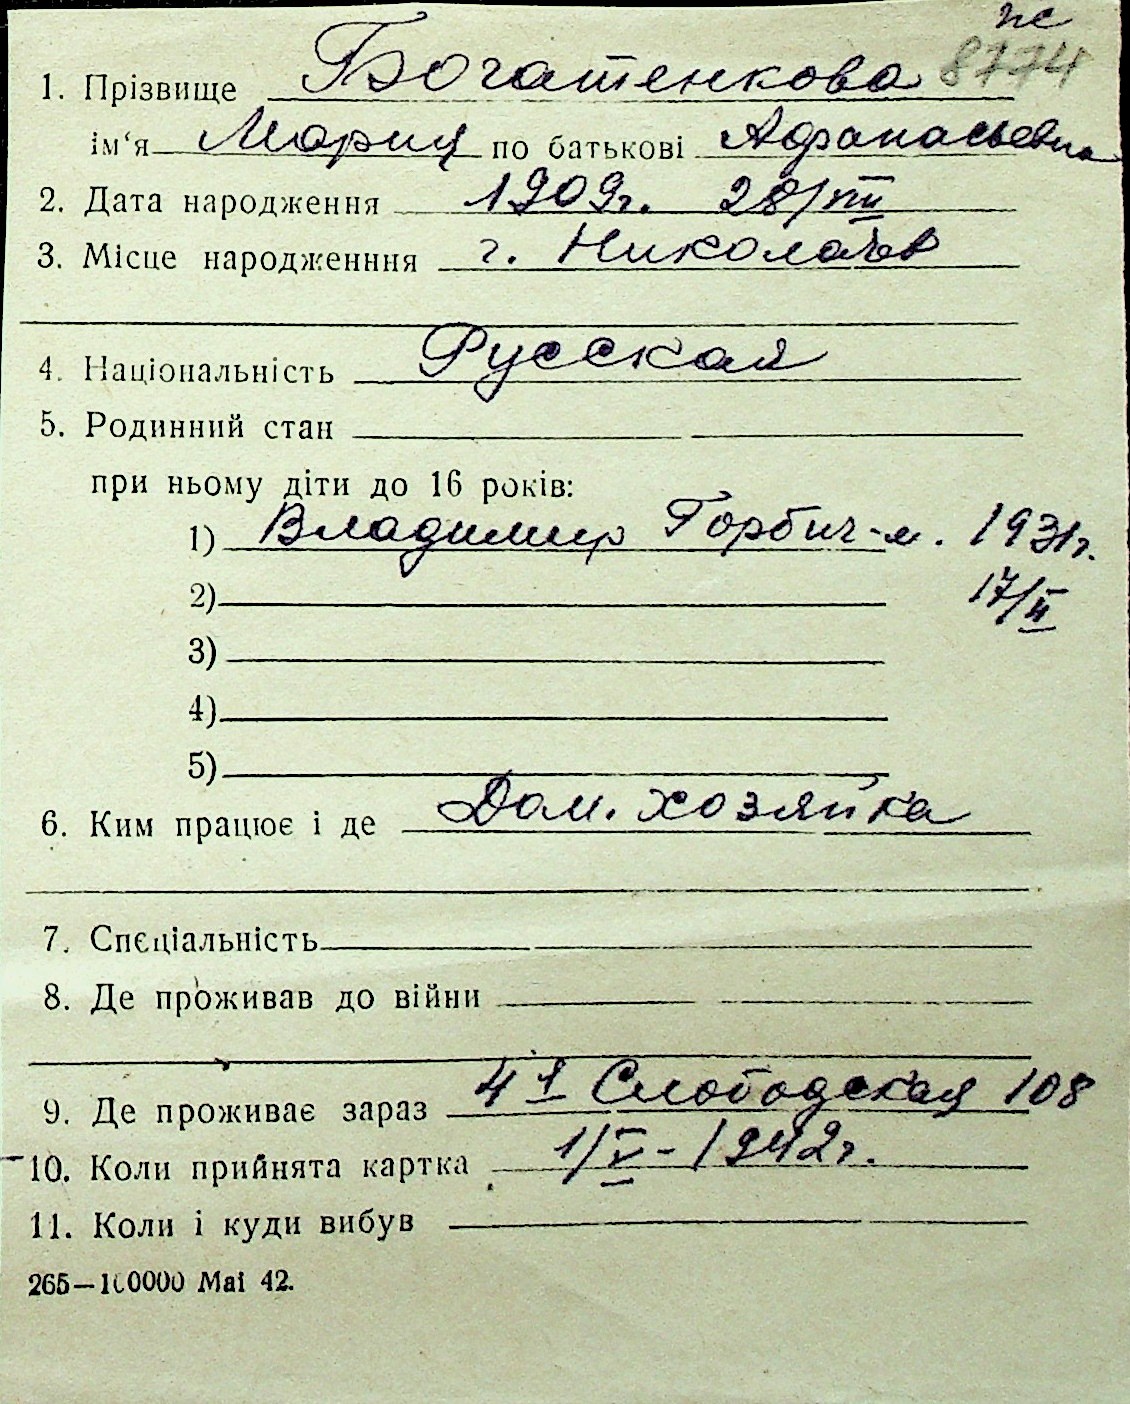 пс
8774
1. Прізвище Богатенкова
ім'я Мария по батькові Афанасьевна
2. Дата народження 1909г. 28/VII
3. Місце народженння г. Николаев
4. Національність Русская
5. Родинний стан
при ньому діти до 16 років:
1) Владимир Горбич-м. 1931г.
2) 17/II
3)
4)
5)
6. Ким працює і де Дом. хозяйка
7. Спеціальність
8. Де проживав до війни
9. Де проживає зараз 4я Слободская 108
10. Коли прийнята картка 1/V-1942г.
11. Коли і куди вибув
265—100000 Mai 42.